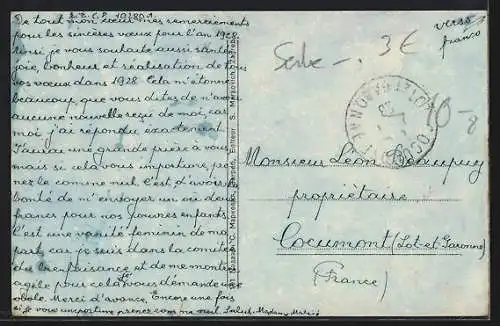 De tout mon cœur mes remerciements
pour les sincères vœux pour l'an 1928.
Ainsi je vous souhaite aussi santé
joie, bonheur et réalisation de tous
vos vœux dans 1928. Cela m'étonne
beaucoup, que vous dites de n'avoir
aucune nouvelle reçu de moi, car
moi j'ai répondu exactement.
J'aurau une grande prière à vous
mais si cela vous importune, pre-
nez le comme nul c'est, d'avoir la
bonté de m'envoyer un ou deux
francs pour nos pauvres enfants.
C'est une vanité feminin de ma
part, car je suis dans la comitée
de bienfaisance et de me montrer
agile pour cela je Vous demande une
obole. Merci d'avance. Encore une fois
si je vous importune prenez comme nul. Salut.
Editeur S. Marzovich, Zagreb
verso
franco
Serbe -. 3€
10-8
Monsieur Léon Beaupuy
propriétaire
Cocumont (Lot-et-Garonne)
(France)